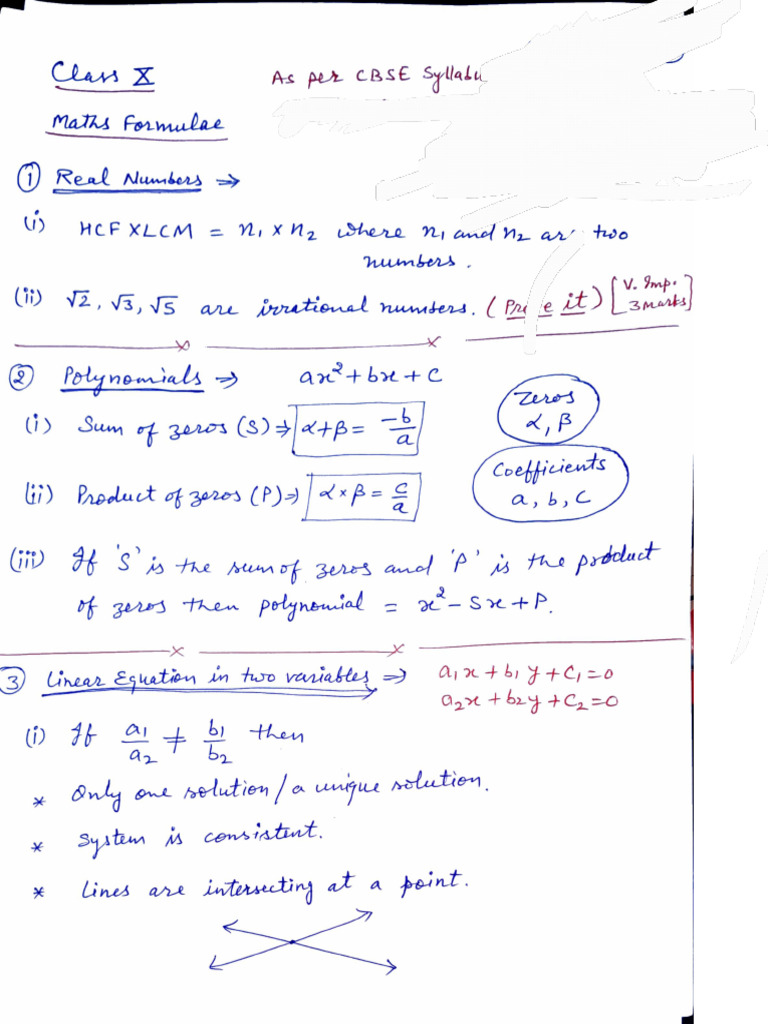 Class X As per CBSE Syllabu
Maths Formulae
① Real Numbers →
(i) HCF X LCM = n₁ × n₂ where n₁ and n₂ are two
numbers.
(ii) √2, √3, √5 are irrational numbers. (Prove it) [V. Imp. 3 marks]
② Polynomials ⇒ ax² + bx + c
Zeros
α, β
(i) Sum of zeros (S) ⇒ α+β = -b/a
Coefficients
a, b, c
(ii) Product of zeros (P) ⇒ α × β = c/a
(iii) If 'S' is the sum of zeros and 'P' is the product
of zeros then polynomial = x² - Sx + P.
③ Linear Equation in two variables ⇒ a₁x + b₁y + C₁ = 0
a₂x + b₂y + C₂ = 0
(i) If a₁/a₂ ≠ b₁/b₂ then
* Only one solution / a unique solution.
* System is consistent.
* Lines are intersecting at a point.